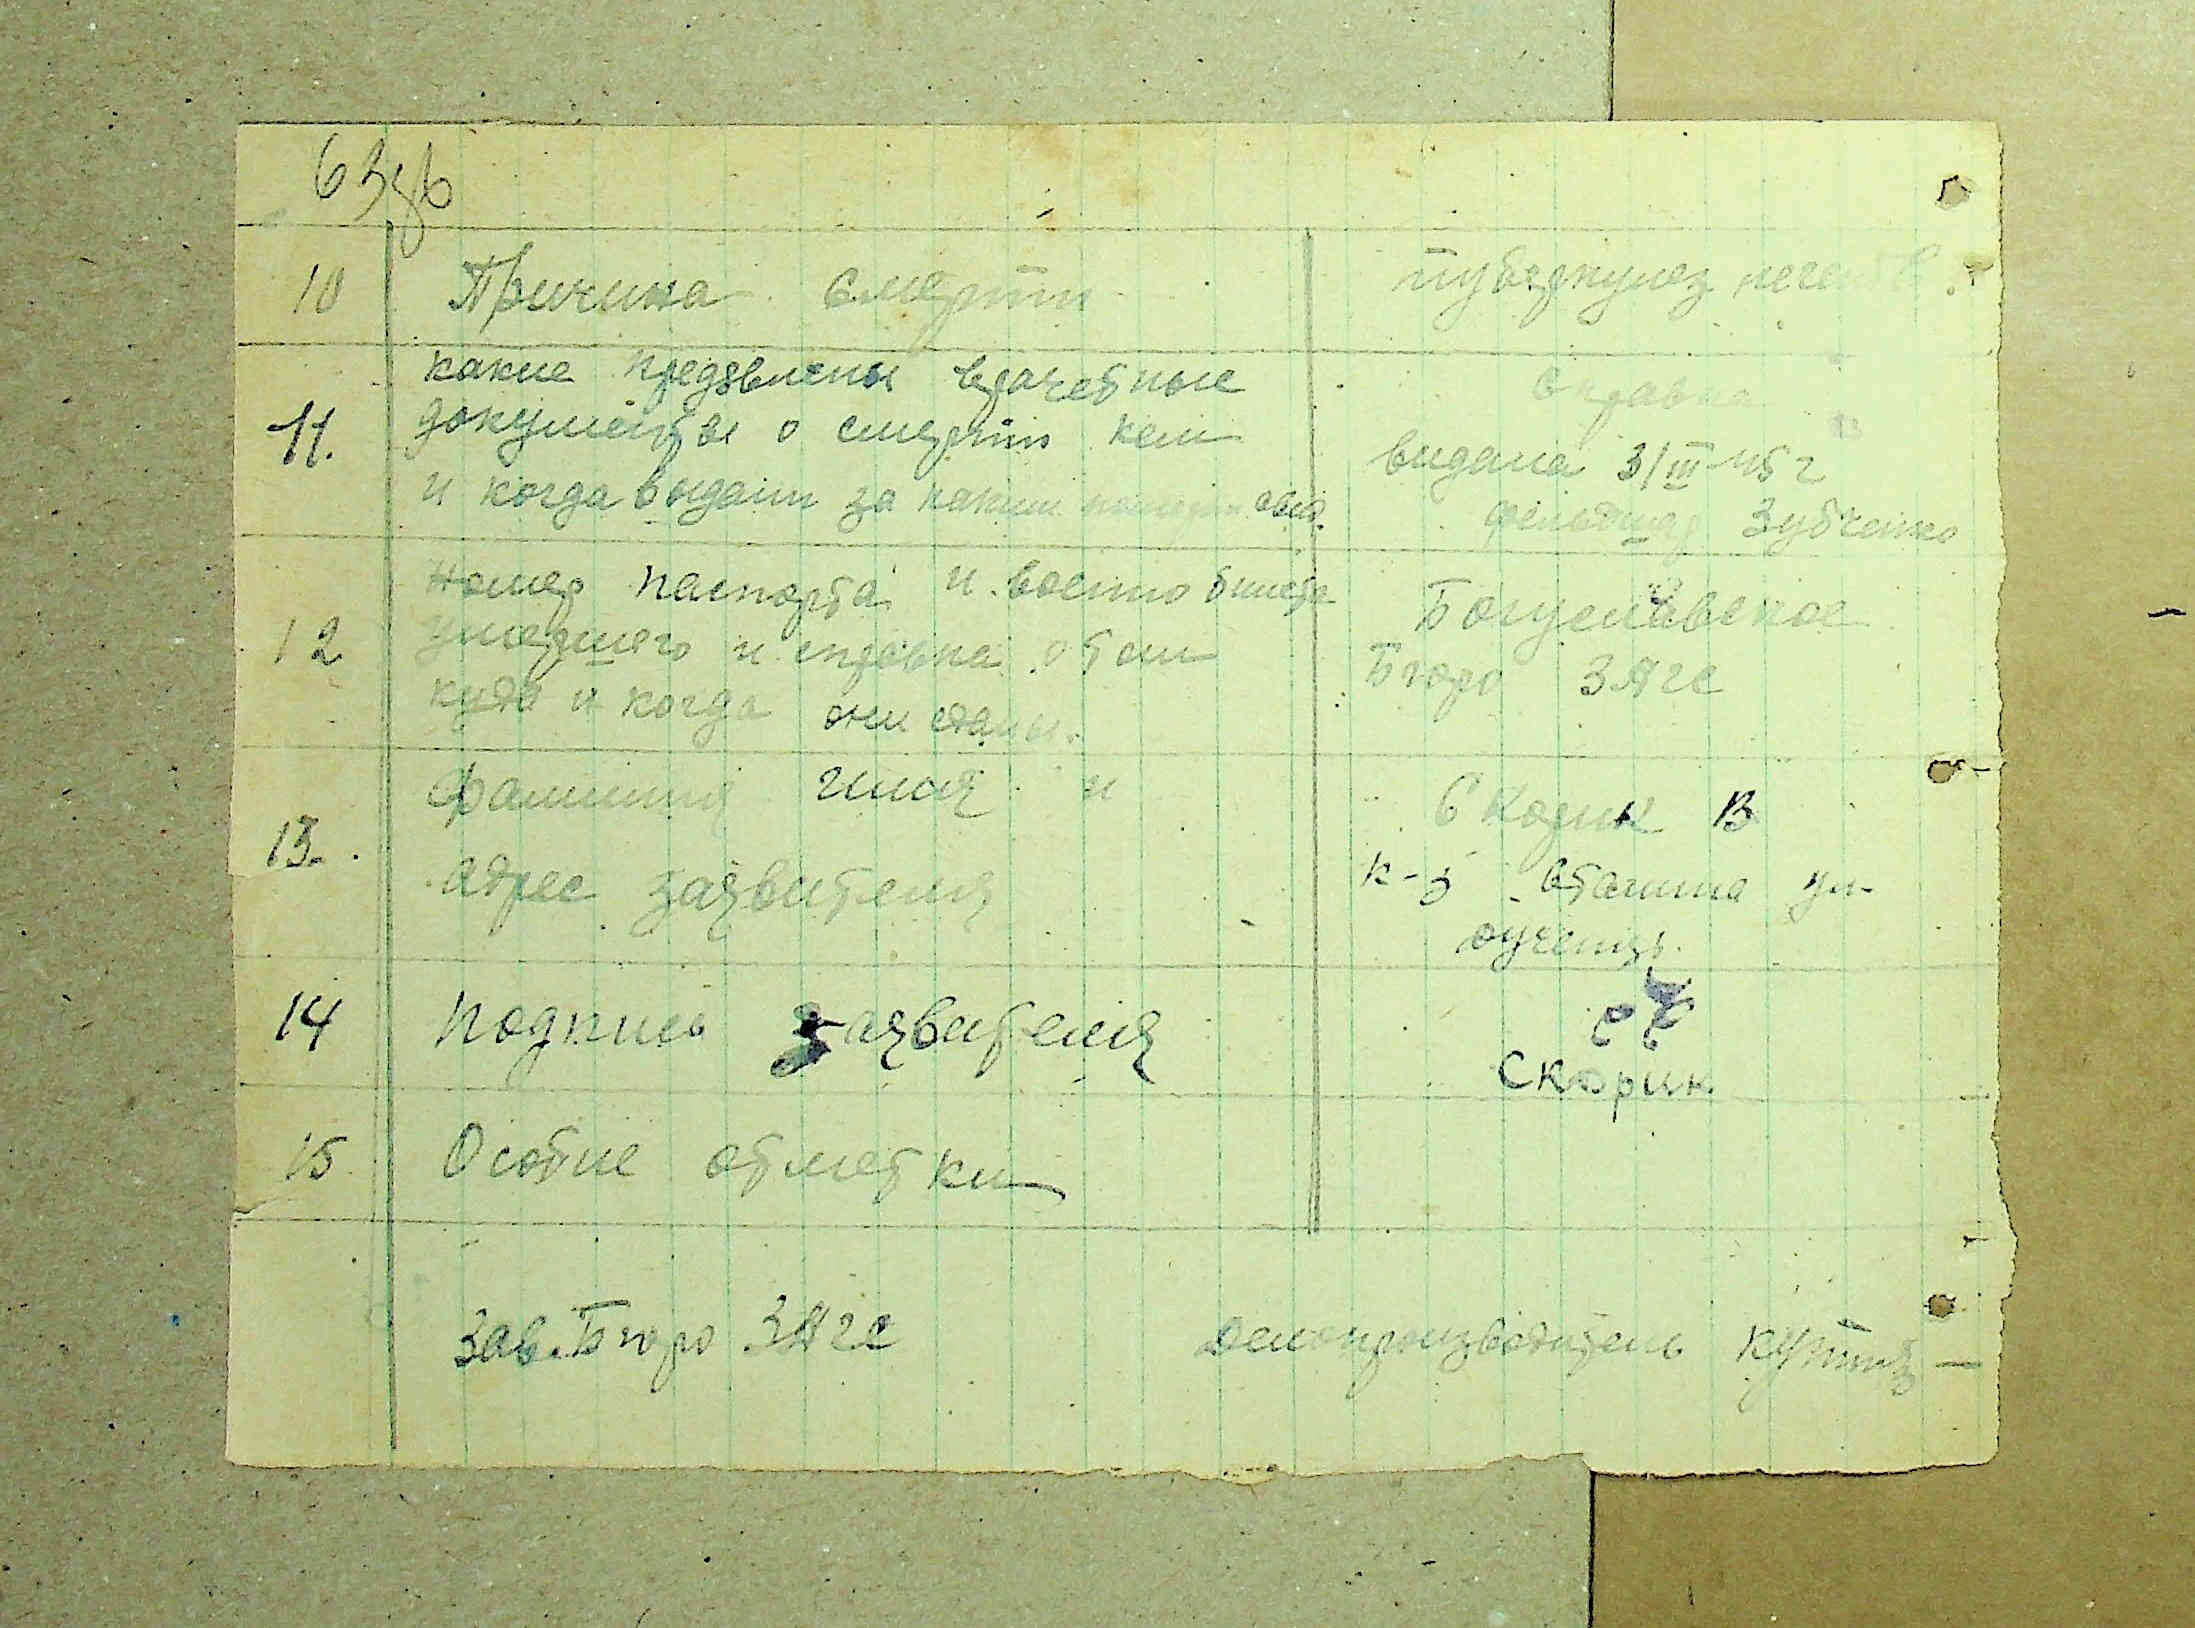 63зв
10 Причина смерти туберкулез
какие предявлены врачебные
11. документы о смерти кем
и когда выдан за каким
справка
видана 3/III 45 г
фельдшер Зубченко
номер паспорта и воено билета
12 умершего и справка
куда и когда они сданы.
Богуславское
Бюро ЗАГС
13. Фамилия Имя и
адрес заявителя
Скорик В
к-з Сталина ул-
14 Подпись заявителя
Скорик
15 Особие отметки
Зав. Бюро ЗАГС делопроизводитель